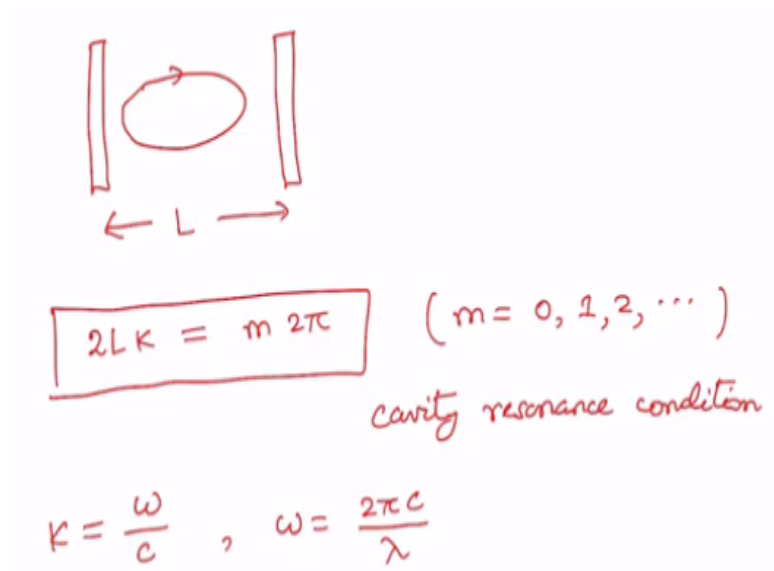 ← L →
2LK = m 2π (m = 0, 1, 2, ...)
cavity resonance condition
K = ω/c , ω = 2πc/λ